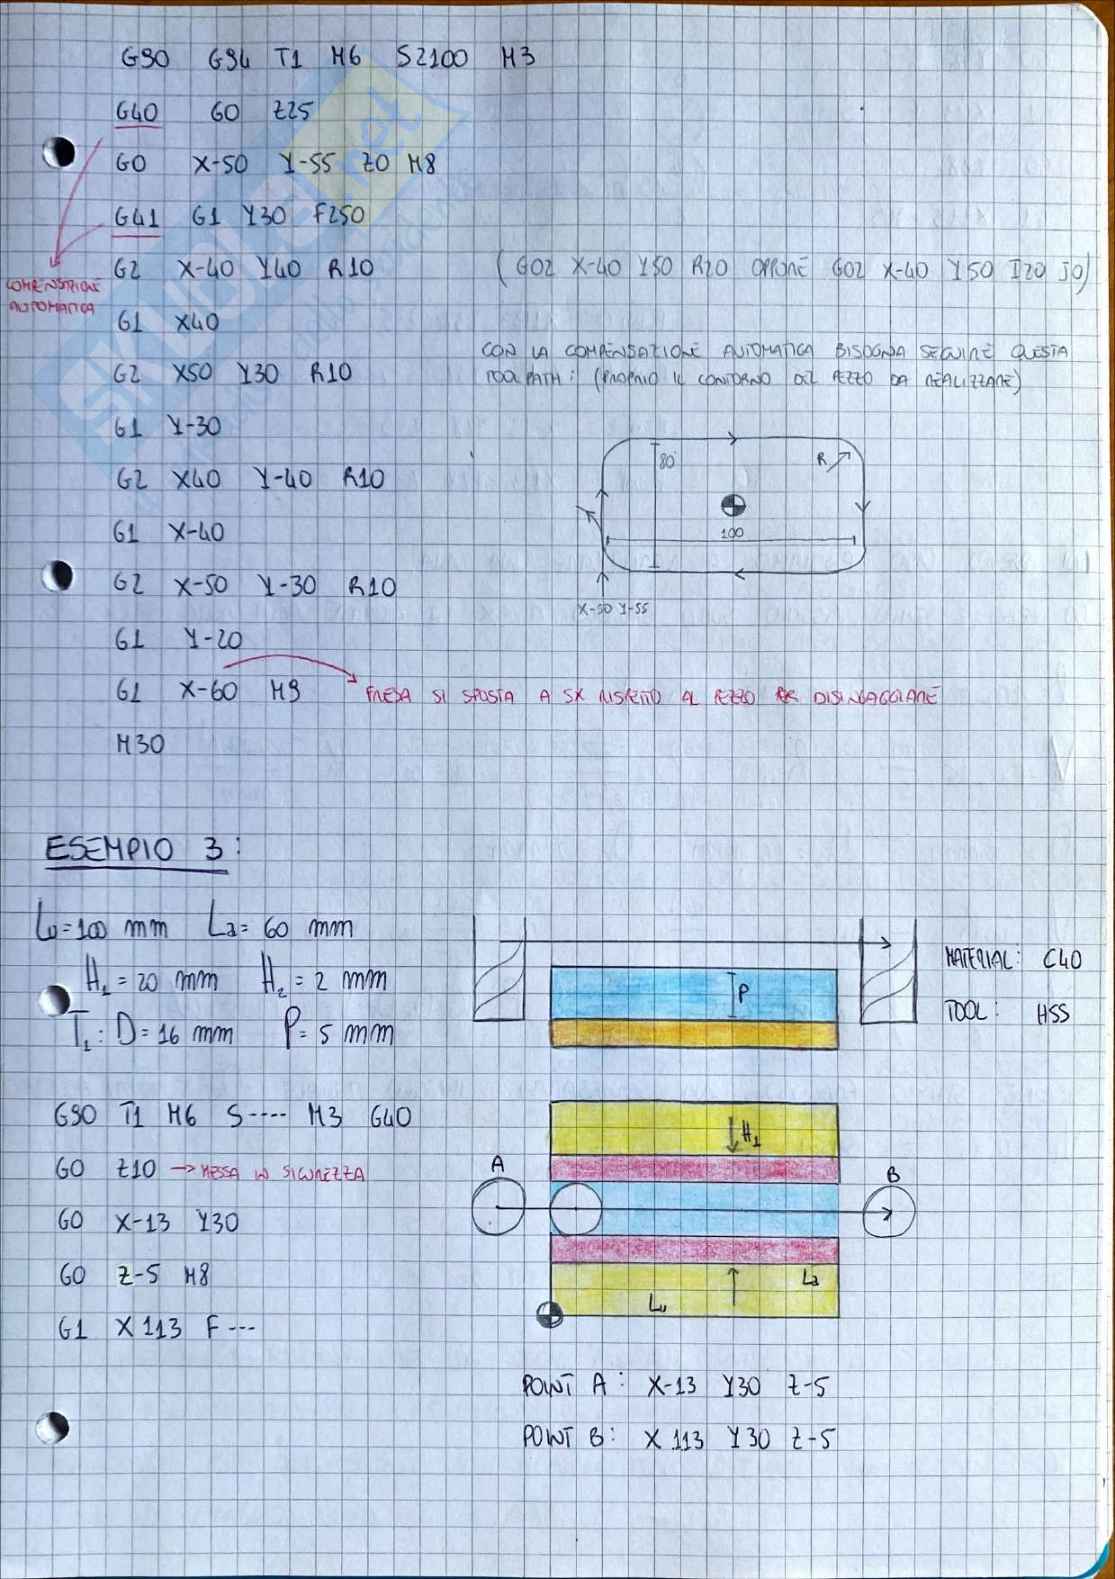 G90 G94 T1 M6 S2100 M3
G40 G0 Z25
G0 X-50 Y-55 Z0 M8
G41 G1 Y30 F250
G2 X-40 Y40 R10 (G02 X-40 Y50 R20 OPPURE G02 X-40 Y50 I20 J0)
COMPENSAZIONE
AUTOMATICA
G1 X40
CON LA COMPENSAZIONE AUTOMATICA BISOGNA SEGUIRE QUESTA
TOOLPATH: (PROPRIO IL CONTORNO DEL PEZZO DA REALIZZARE)
G2 X50 Y30 R10
G1 Y-30
80 R
G2 X40 Y-40 R10
G1 X-40
100
G2 X-50 Y-30 R10
X-50 Y-55
G1 Y-20
G1 X-60 M9 FRESA SI SPOSTA A SX RISPETTO AL PEZZO PER DISINGAGGIARE
M30
ESEMPIO 3:
Lu=100 mm La= 60 mm
H1 = 20 mm H2 = 2 mm
T1: D= 16 mm P= 5 mm
P
MATERIAL: C40
TOOL: HSS
G90 T1 M6 S---- M3 G40
G0 Z10 → MESSA IN SICUREZZA
G0 X-13 Y30
G0 Z-5 M8
G1 X113 F---
H1
A
B
La
Lu
POINT A: X-13 Y30 Z-5
POINT B: X 113 Y30 Z-5